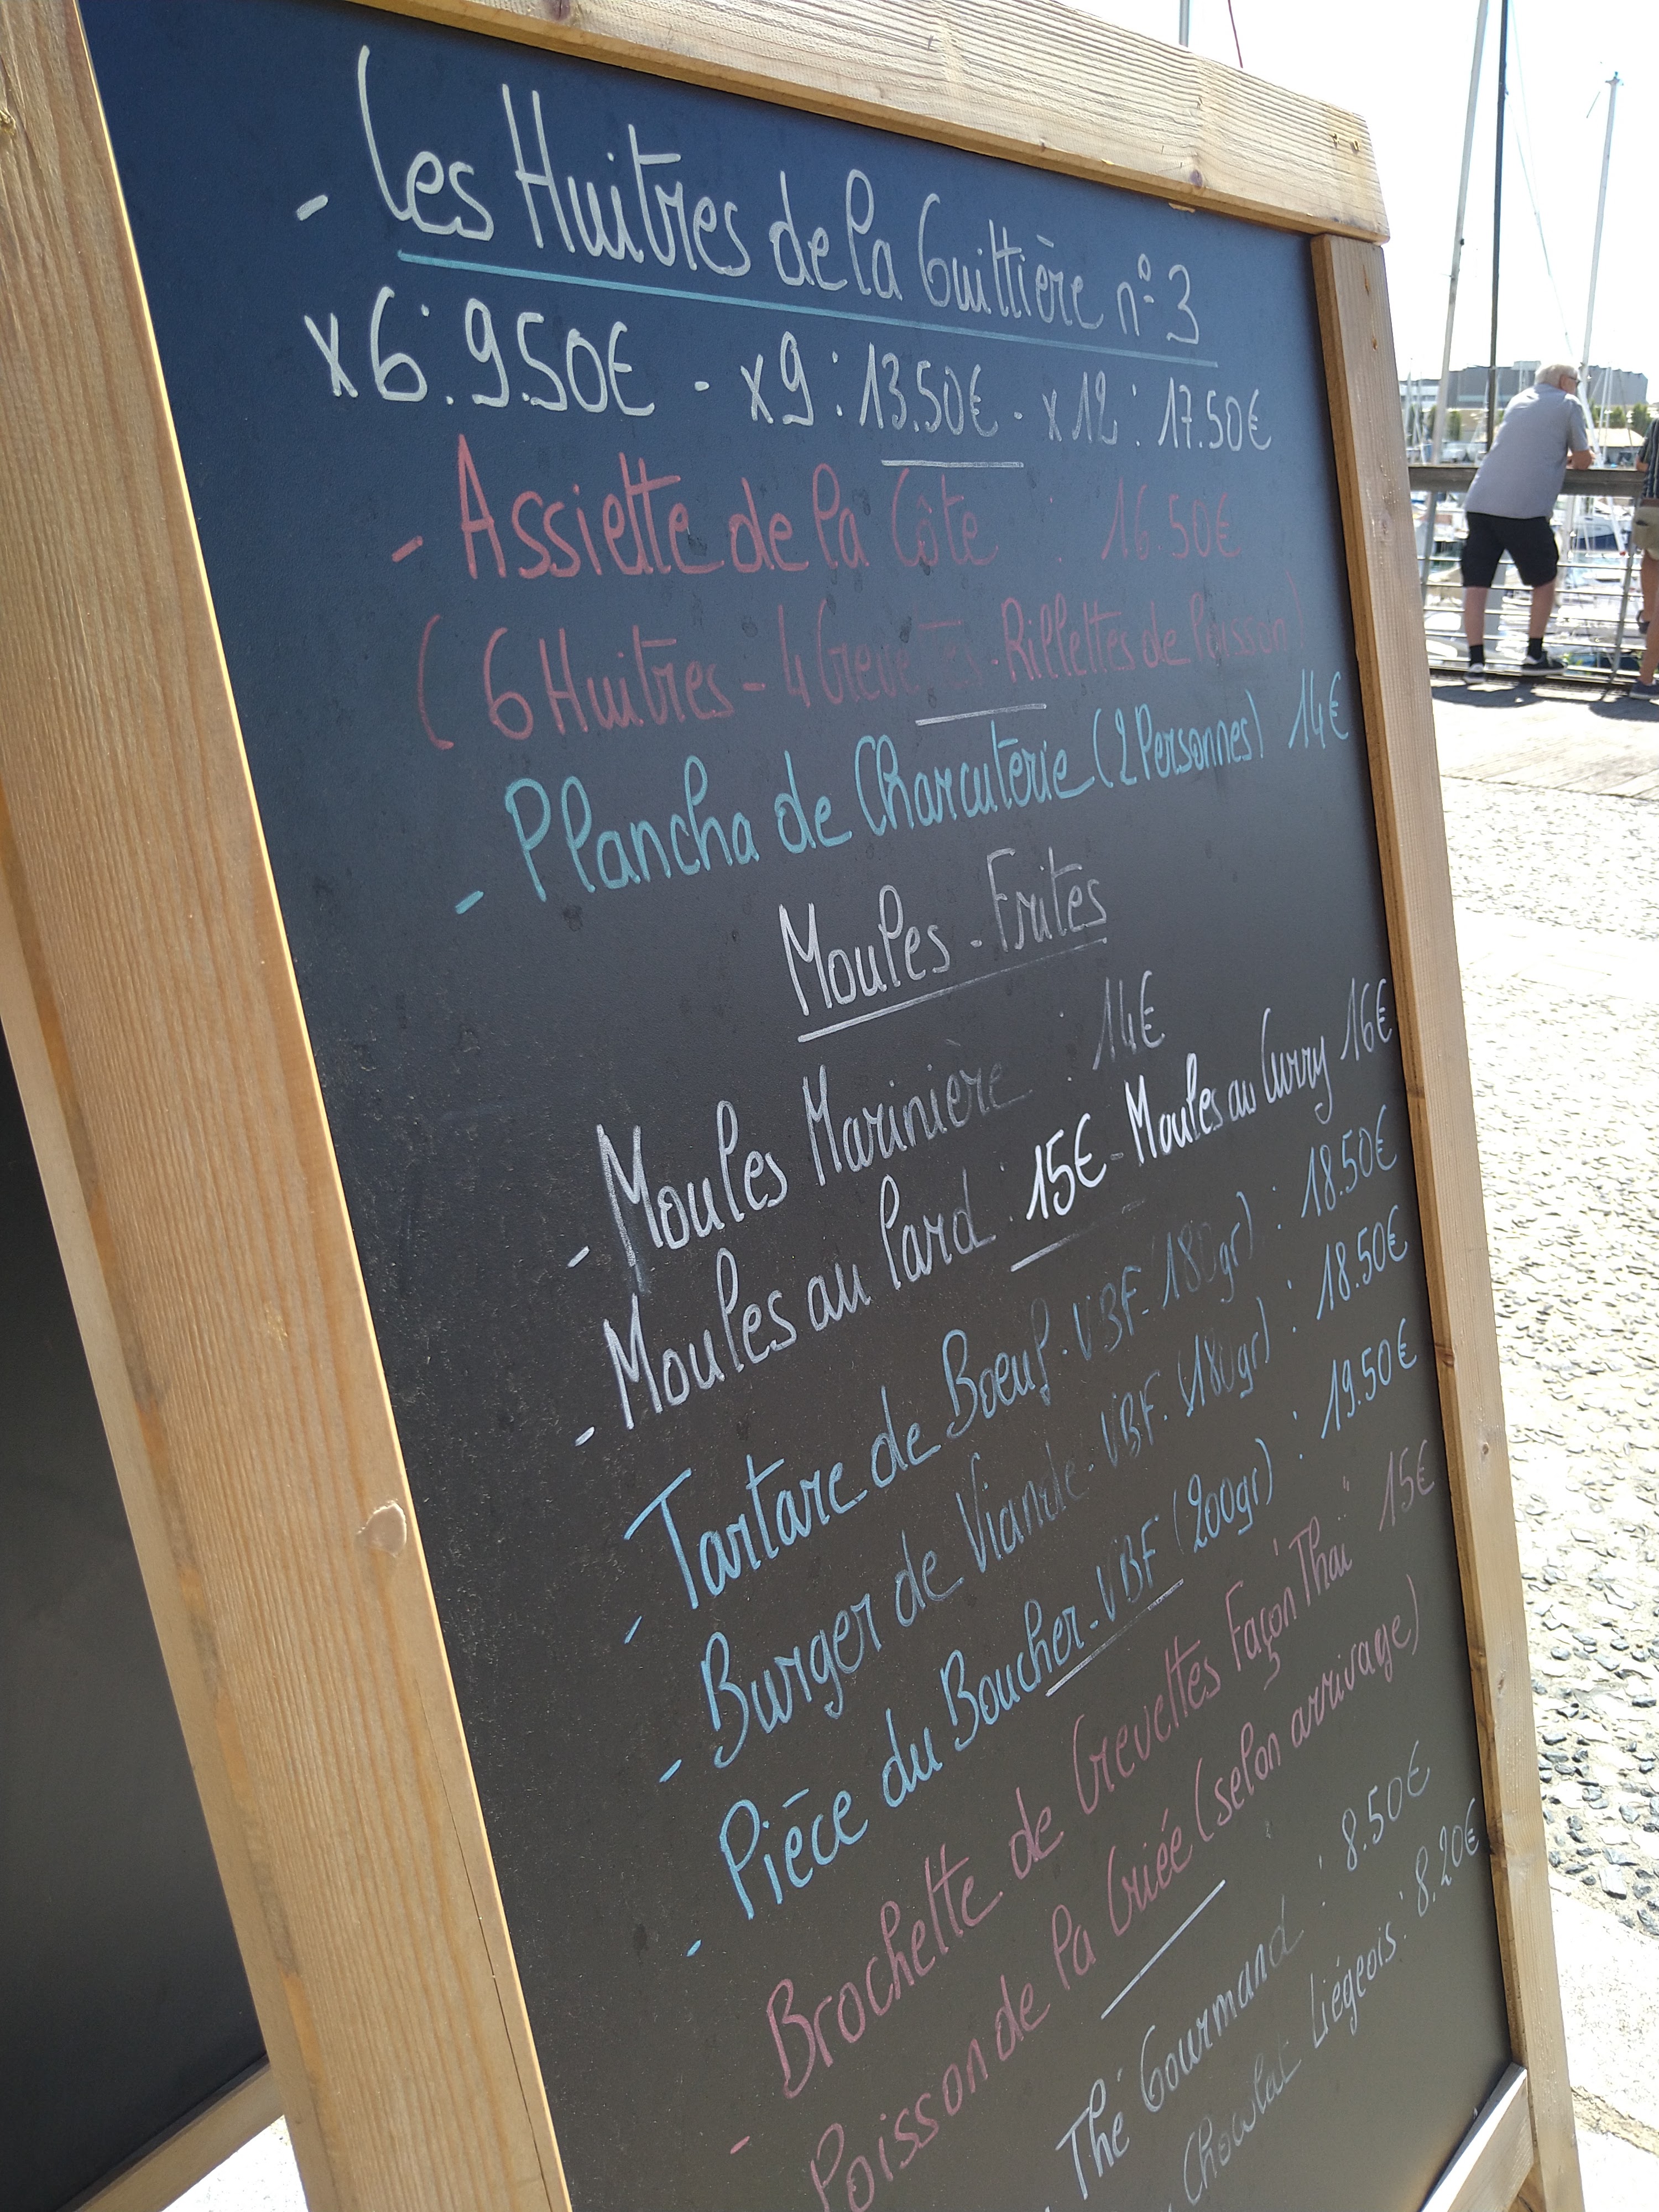 - Les Huitres de la Guittière n° 3
x6 : 9.50€ - x9 : 13.50€ - x12 : 17.50€
- Assiette de la Côte : 16.50€
(6 Huitres - 4 Rillettes de Poisson)
- Plancha de Charcuterie (2 Personnes) 14€
Moules - Frites
- Moules Marinière : 14€
- Moules au Lard : 15€ - Moules au Curry 16€
- Tartare de Boeuf - VBF - (180gr) : 18.50€
- Burger de Viande - VBF - (180gr) : 18.50€
- Pièce du Boucher - VBF (200gr) : 19.50€
- Brochette de Crevettes Façon "Thaï" 15€
Poisson de la Criée (selon arrivage)
Thé Gourmand : 8.50€
Chocolat Liégeois : 8.20€